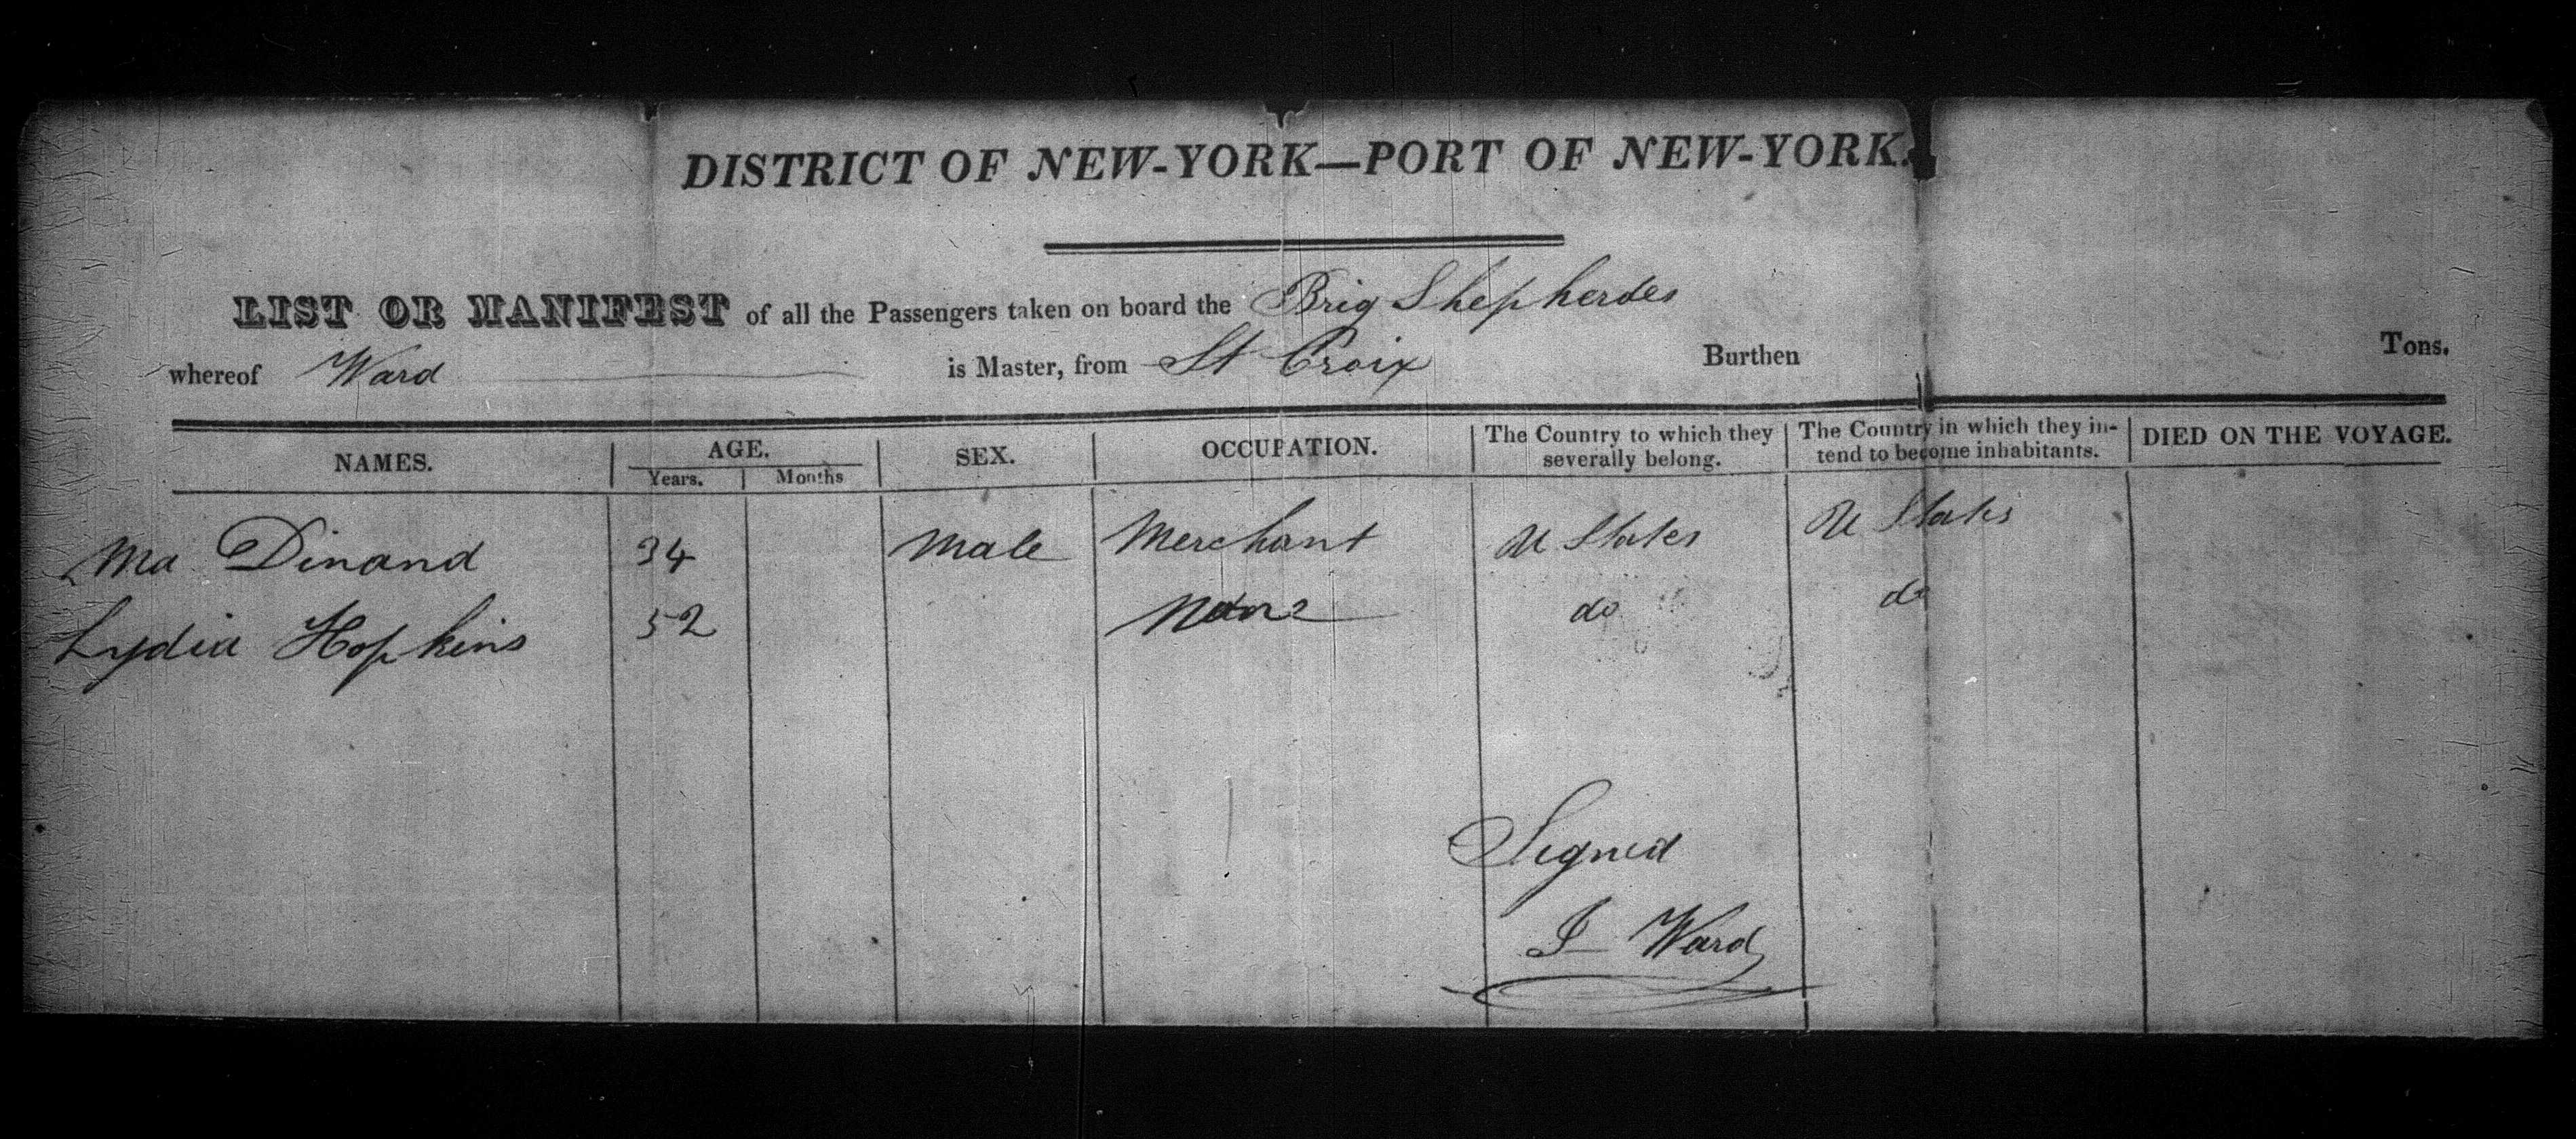 DISTRICT OF NEW-YORK—PORT OF NEW-YORK.
LIST OR MANIFEST of all the Passengers taken on board the Brig Shepherdes
whereof Ward is Master, from St Croix Burthen Tons.
NAMES. AGE. Years. Months SEX. OCCUPATION. The Country to which they severally belong. The Country in which they intend to become inhabitants. DIED ON THE VOYAGE.
Ma Dinand 34 Male Merchant U States U States
Lydia Hopkins 52 None do do
Signed
J Ward